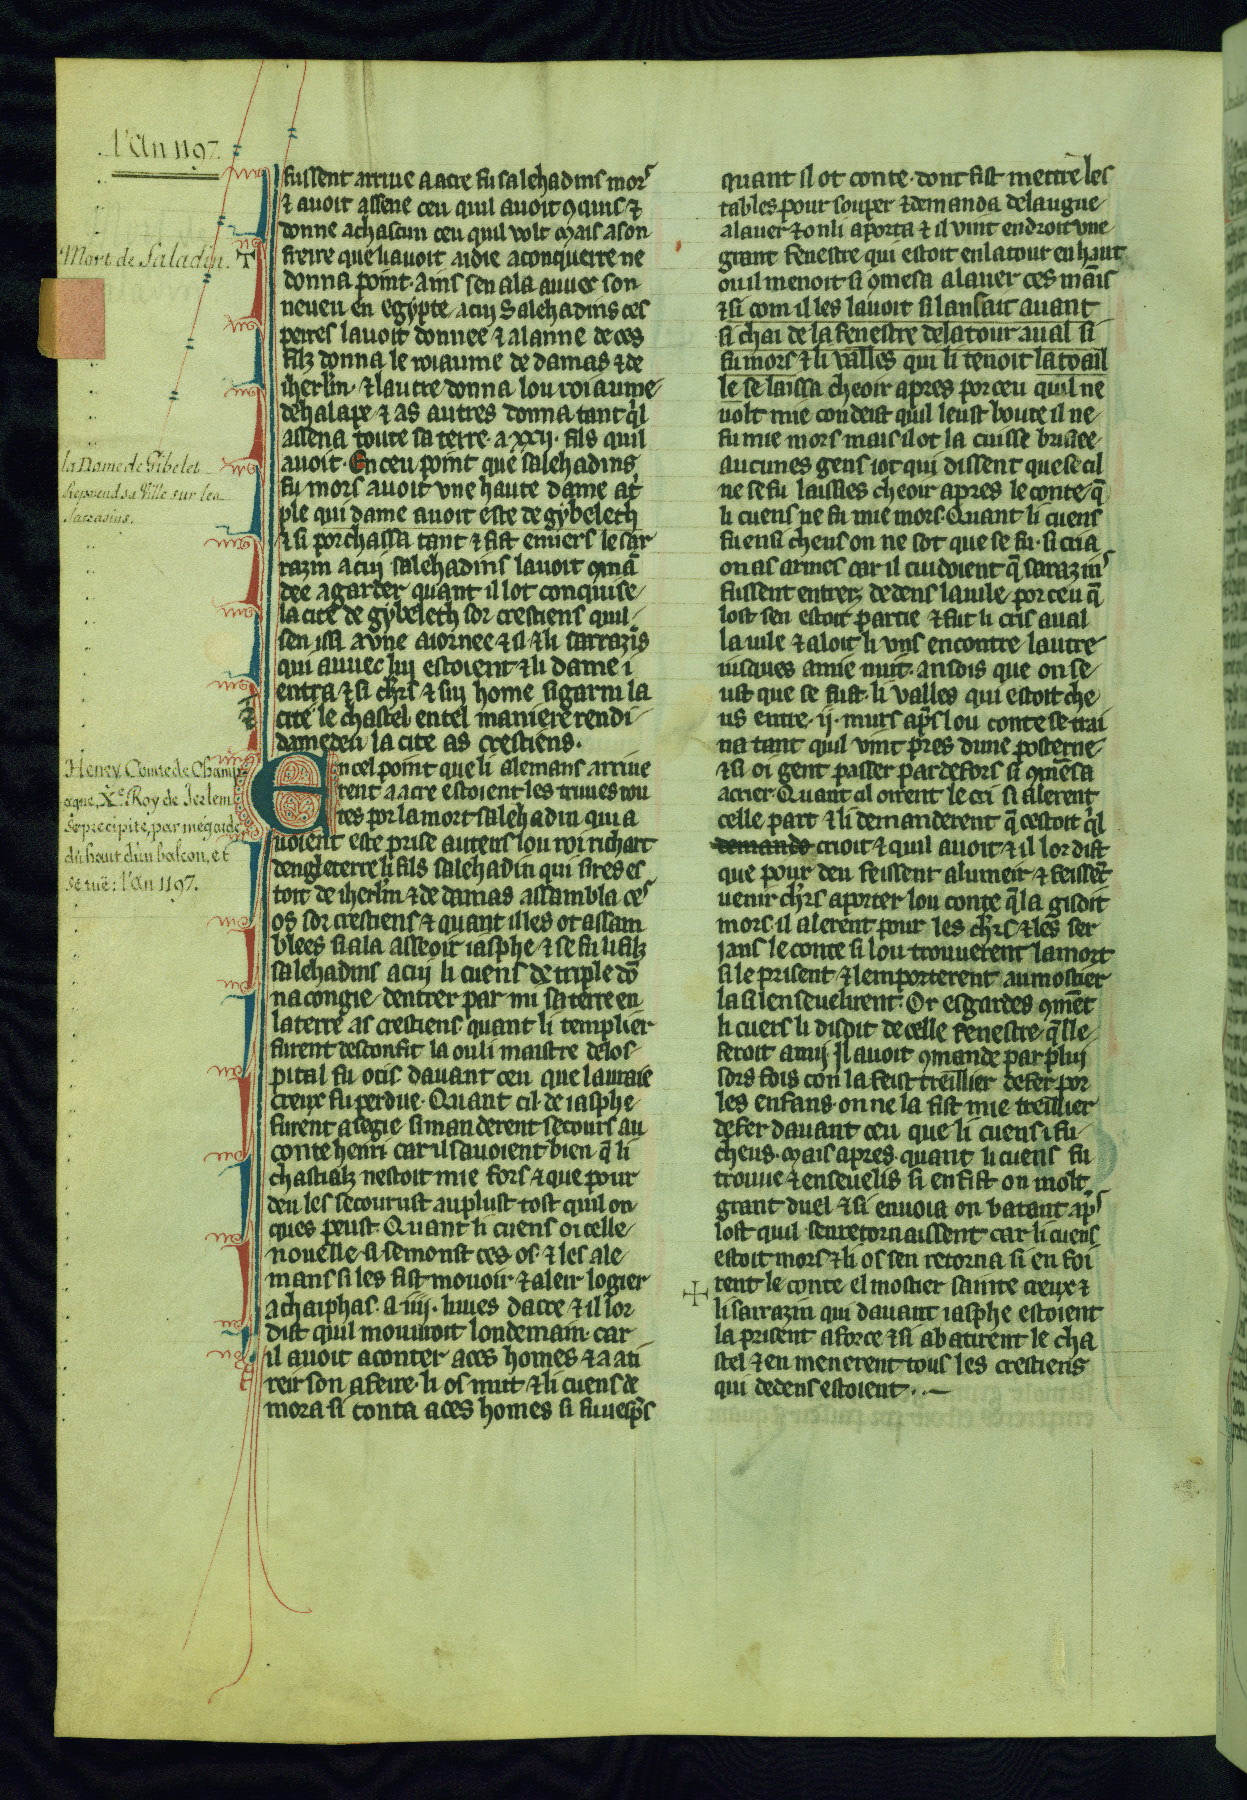 l'An 1197.
Mort de Saladin.
la Dame de Gibelet
Reprend sa Ville sur les
Sarrasins.
Henry, Comte de Champ
agne, X.e Roy de Jerlem
se precipite, par mégarde,
du haut d'un balcon, et
se tuë: l'An 1197.
fussent arriue a acre fu salehadins mors
⁊ auoit assene ceu quil auoit ꝯquis ⁊
donne a chascun ceu quil volt Mais a son
freire que li auoit aidie a conquerre ne
donna point. ains sen ala auuec son
neueu en egypte. a cuj Salehadins ces
peires lauoit donnee ⁊ a lanne de ces
filz donna le roiaume de damas ⁊ de
iherl̄m. ⁊ lautre donna lou roiaume
de halape ⁊ as autres donna tant q̄l
assena toute sa terre. a .xxij. fils quil
auoit. En ceu point que salehadins
fu mors auoit vne haute dame a t͛
ple qui dame auoit este de gybeleth
⁊ si porchassa tant ⁊ fist enuers le sar
razin a cuj salehadins lauoit ꝯmā
dee a garder quant il lot conquise
la cite de gybeleth sor crestiens quil
sen issi a vne aiornee ⁊ il ⁊ li sarrazīs
qui auuec luj estoient ⁊ li dame i
entra ⁊ si ch͛rs ⁊ siu home si garni la
cite le chastel. en tel maniere rendi
damedeu la cite as crestiens.
En cel point que li alemans arriue
rent a acre estoient les truues rou
tes por la mort salehadin qui a
uoient este prise auers lou roi richart
dengleterre li fils salehadin qui sires es
toit de iherl̄m ⁊ de damas assambla ces
os sor crestiens ⁊ quant il les ot assam
blees si ala asseoir iasphe ⁊ se fu li filz
salehadins a cuj li cuens de triple dō
na congie dentrer par mi sa terre en
la terre as crestiens quant li templier
furent desconfit la ou li maistre de los
pital fu ocis dauant ceu que la uraie
creux fu perdue. Quant cil de iasphe
furent asegie si manderent secours au
conte henri car il sauoient bien q̄ li
chastialz nestoit mie fors ⁊ que pour
deu les secourust au plust tost quil on
ques peust. Quant li cuens oi celle
nouelle si semonst ces os ⁊ les ale
mans si les fist mouoir ⁊ aleir logier
a chaiphas. a .iiij. liwes dacre ⁊ il lor
dist quil mouuroit londemain car
il auoit a conter a ces homes ⁊ a ati
reir son afeire. li os mut ⁊ li cuens de
mora si conta a ces homes si fu uesp͛s
quant il ot conte. dont fist mettre les
tables pour souper ⁊ demanda de laugue
a lauer ⁊ on li aporta ⁊ il vint endroit vne
grant fenestre qui estoit en la tour en haut
ou il menoit si ꝯmesa a lauer ces maīs
⁊ si com il les lauoit si lansait auant
si chai de la fenestre de la tour aual si
fu mors ⁊ li valles qui li tenoit la toail
le se laissa cheoir apres por ceu quil ne
uolt mie con deist quil leust boute il ne
fu mie mors mais il ot la cuisse brisiee
aucunes gens i ot qui dissent que se cil
ne se fu laissies cheoir apres le conte q̄
li cuens ne fu mie mors. Quant li cuens
fu ensi cheus on ne sot que se fu. si cria
on as armes car il cuidoient q̄ sarazins
fussent entrez dedens la uile. por ceu q̄
lost sen estoit partie ⁊ fut li cris aual
la uile ⁊ aloit li vns encontre lautre
iusques a mie nuit. ansois que on se
ust que se fust. li valles qui estoit che
us entre .ij. murs ap͛s lou conte se trai
na tant quil vint pres dune posterne
⁊ si oi gent passer par defors si ꝯmēsa
a crier. Quant cil oirent le cri si alerent
celle part ⁊ li demanderent q̄ cestoit q̄l
demande crioit ⁊ quil auoit ⁊ il lor dist
que pour deu feissent alumeir ⁊ feissēt
uenir ch͛rs aporter lou conte q̄ la gisoit
mors. il alerent pour les ch͛rs ⁊ les ser
jans le conte si lou trouuerent la mort
si le prisent ⁊ lemporterent au mostier
la si lenseuelirent. Or esgardes ꝯmēt
li cuers li disoit de celle fenestre q̄lle
feroit anuj Il auoit ꝯmande par pluj
sors fois con la feist treillier de fer por
les enfans. on ne la fist mie treillier
de fer dauant ceu que li cuens i fu
cheus. Mais apres quant li cuens fu
trouue ⁊ enseuelis si en fist on molt
grant duel ⁊ si enuoia on batant ap͛s
lost quil sen retornaissent car li cuens
estoit mors ⁊ li os sen retorna si en foi
rent le conte el mostier sainte creux ⁊
li sarrazin qui dauant iasphe estoient
la prisent a force ⁊ si abatirent le cha
stel ⁊ en menerent tous les crestiens
qui dedens estoient.